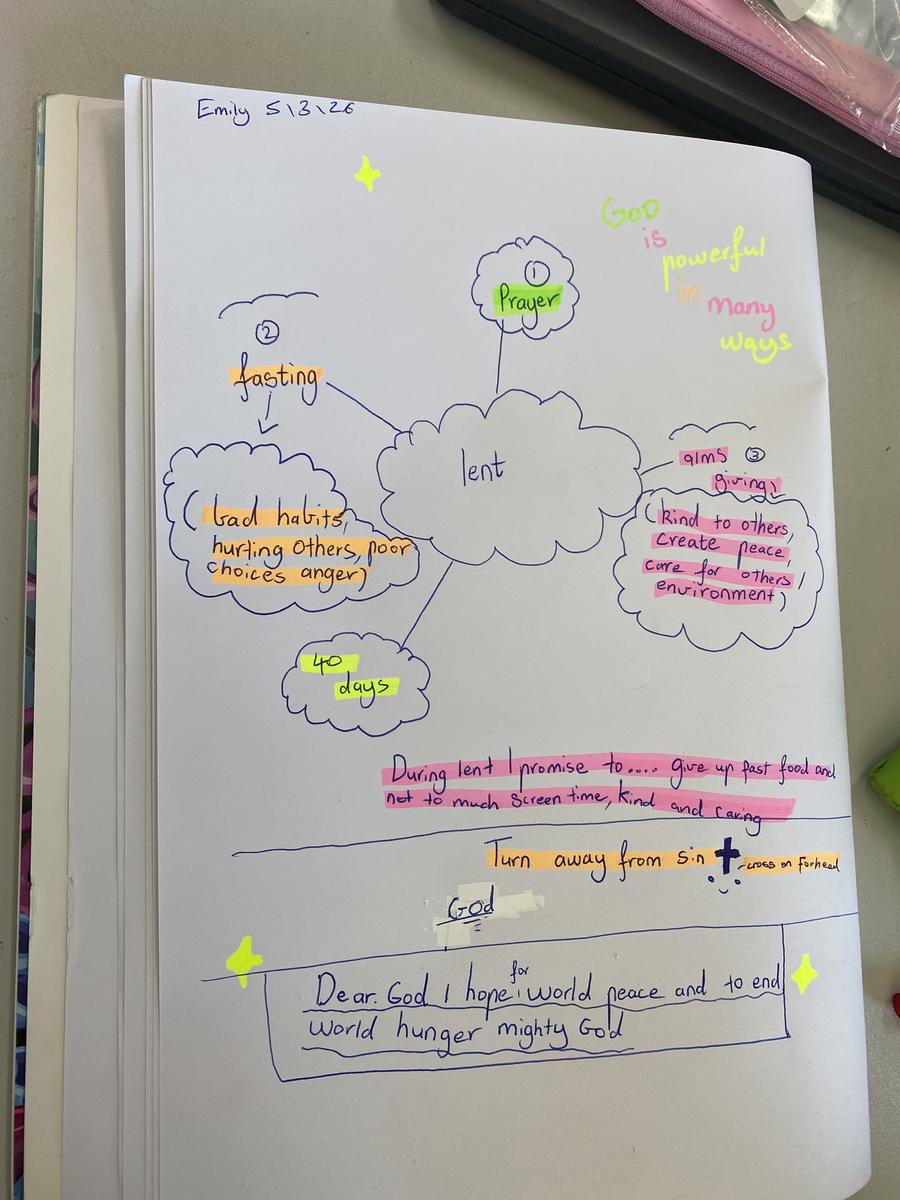 Emily 5\3\26
God
is
powerful
in
many
ways
①
Prayer
②
fasting
lent
alms ③
giving
(bad habits,
hurting others, poor
choices anger)
(kind to others,
create peace,
care for others/
environment)
40
days
During lent I promise to.... give up fast food and
not to much screen time, kind and caring
Turn away from sin -cross on forhead
God
Dear. God I hope for world peace and to end
world hunger mighty God